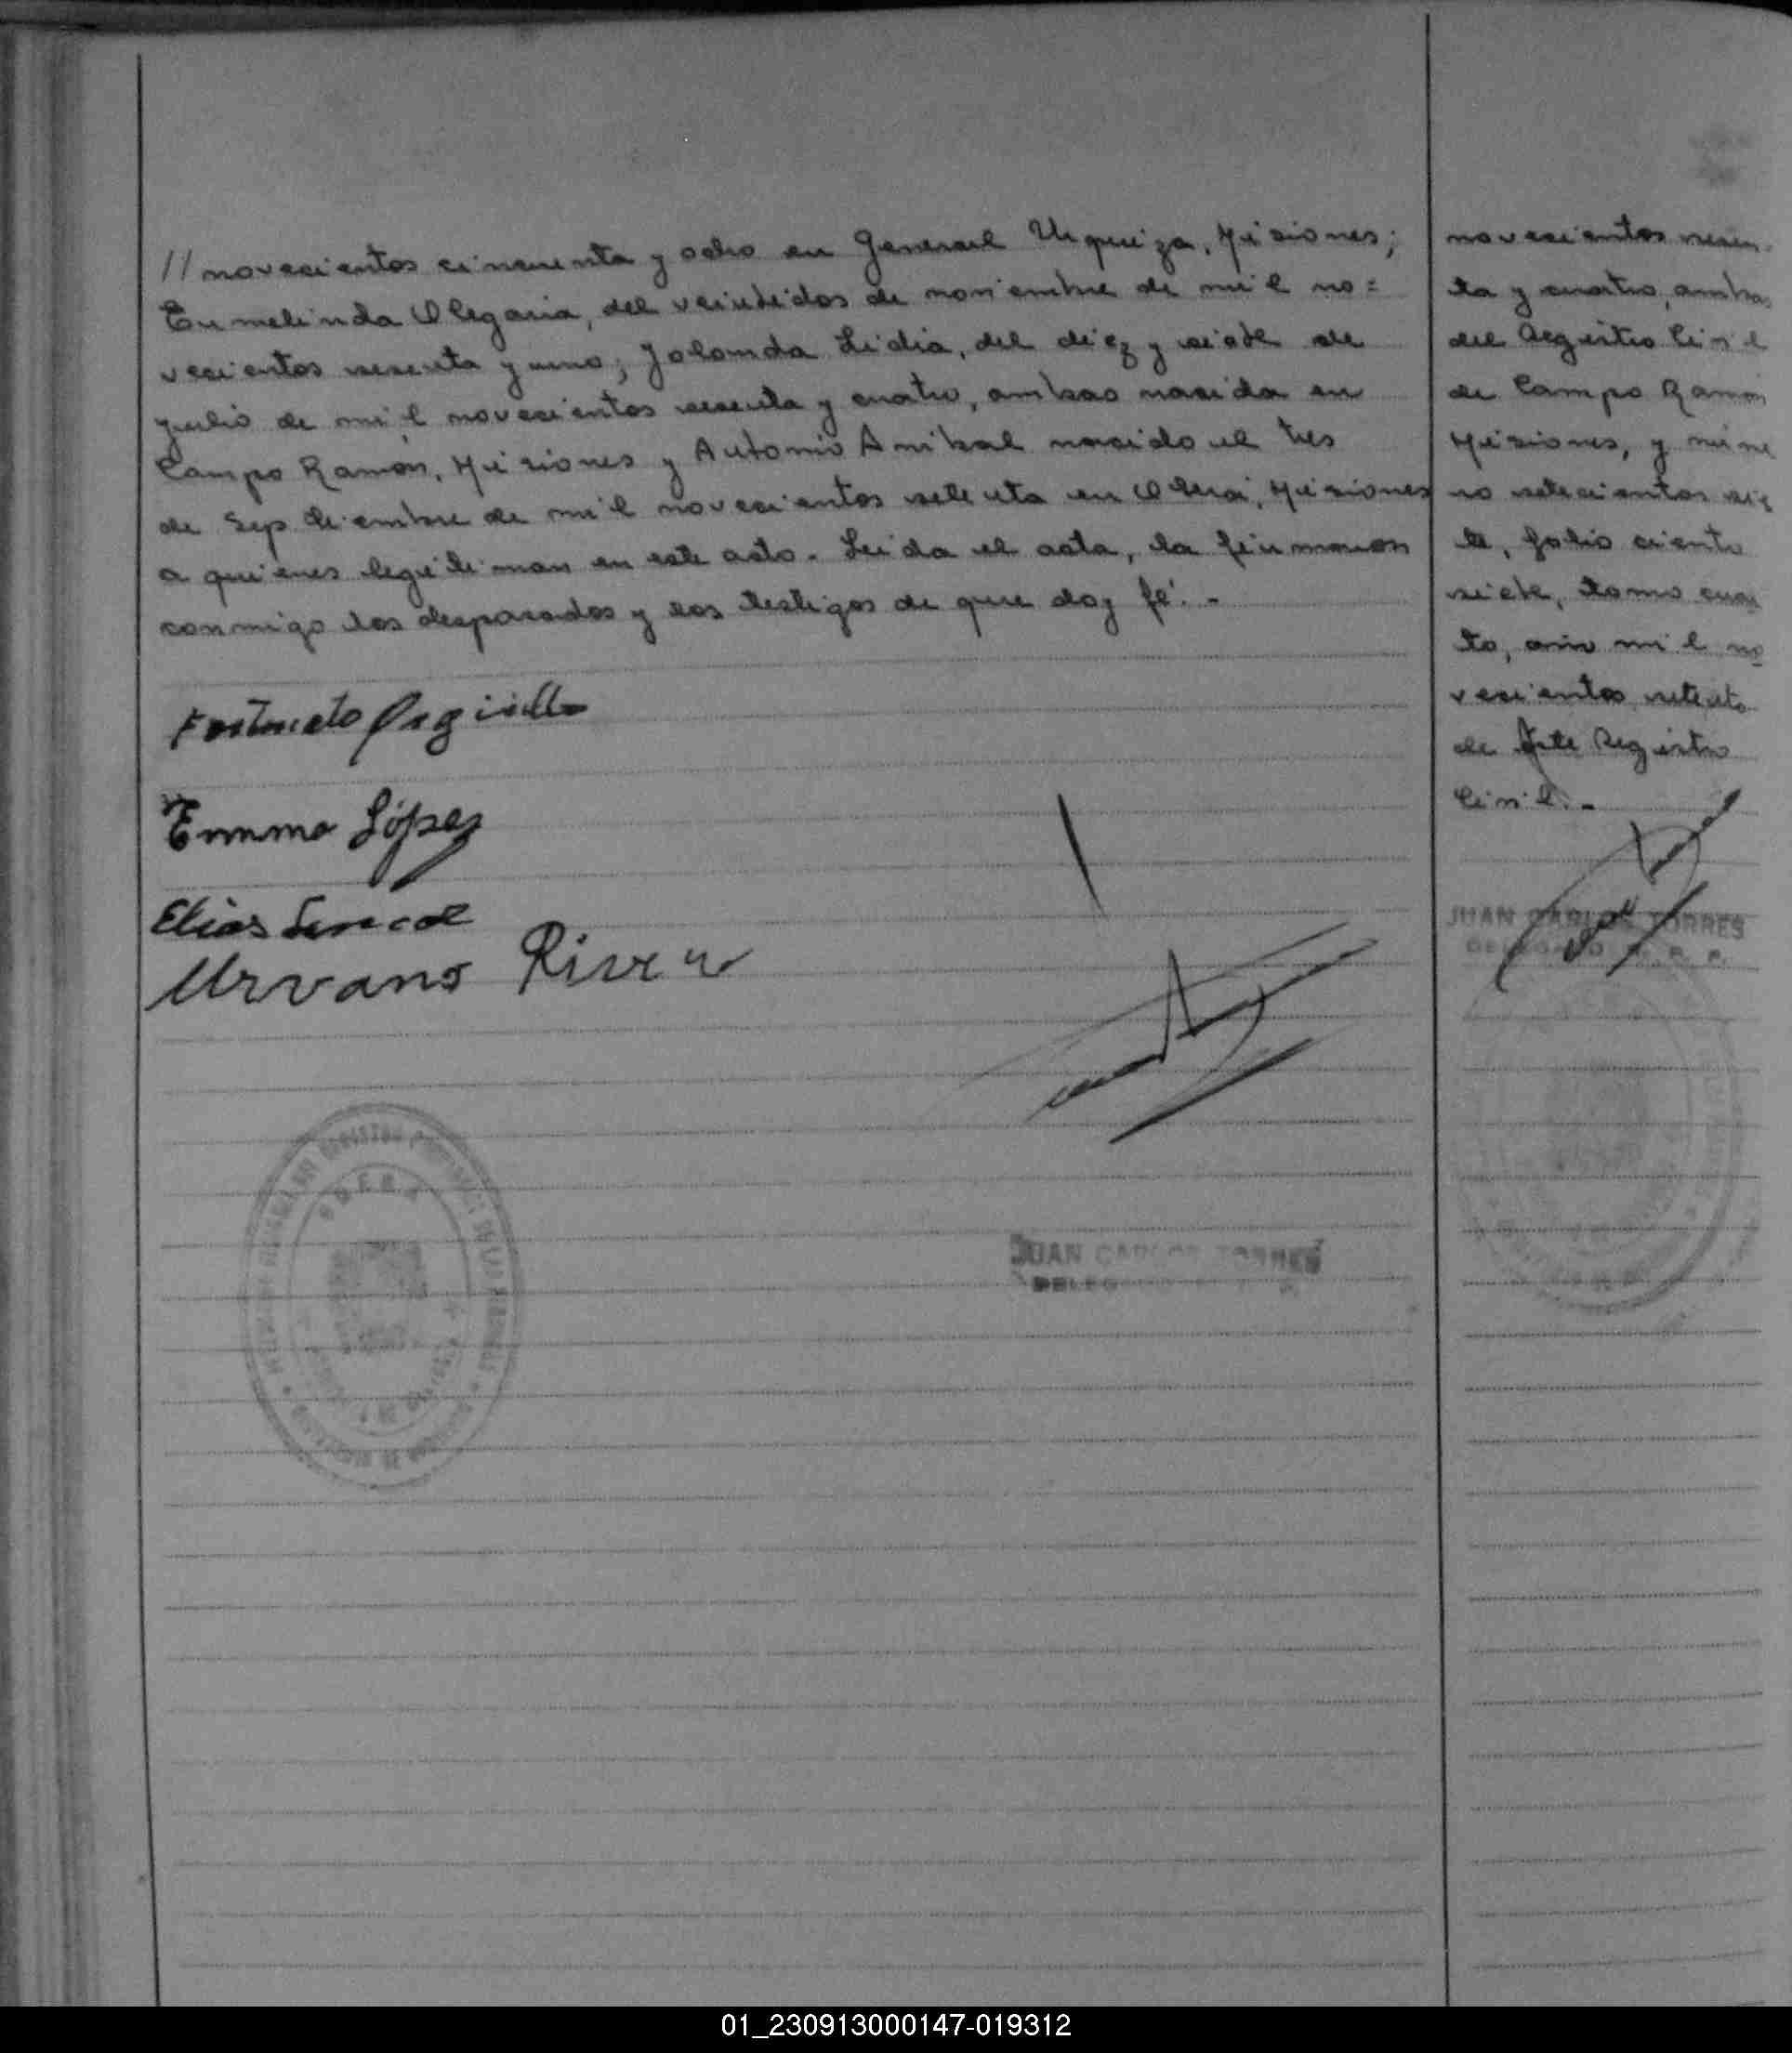 // novecientos cincuenta y ocho en General Urquiza, Misiones;
Ermelinda Olegaria, del veintidos de noviembre de mil no=
vecientos sesenta y uno; Jolanda Lidia, del diez y siete de
julio de mil novecientos sesenta y cuatro, ambas nacida en
Campo Ramón, Misiones y Antonio Anibal nacido el tres
de Septiembre de mil novecientos setenta en Oberá, Misiones
a quienes legitiman en este acto. Leida el acta, la firmaron
conmigo los desposados y los testigos de que doy fé. -
Emma López
Elias
Urvano
JUAN CARLOS TORRES
DELEGADO
novecientos sesen
ta y cuatro, ambas
del Registro Civil
de Campo Ramón
Misiones, y núme
ro setecientos sie
te, folio ciento
siete, tomo cuar
to, año mil no
vecientos setenta
de este Registro
Civil. -
JUAN CARLOS TORRES
DELEGADO R. P.
01_230913000147-019312